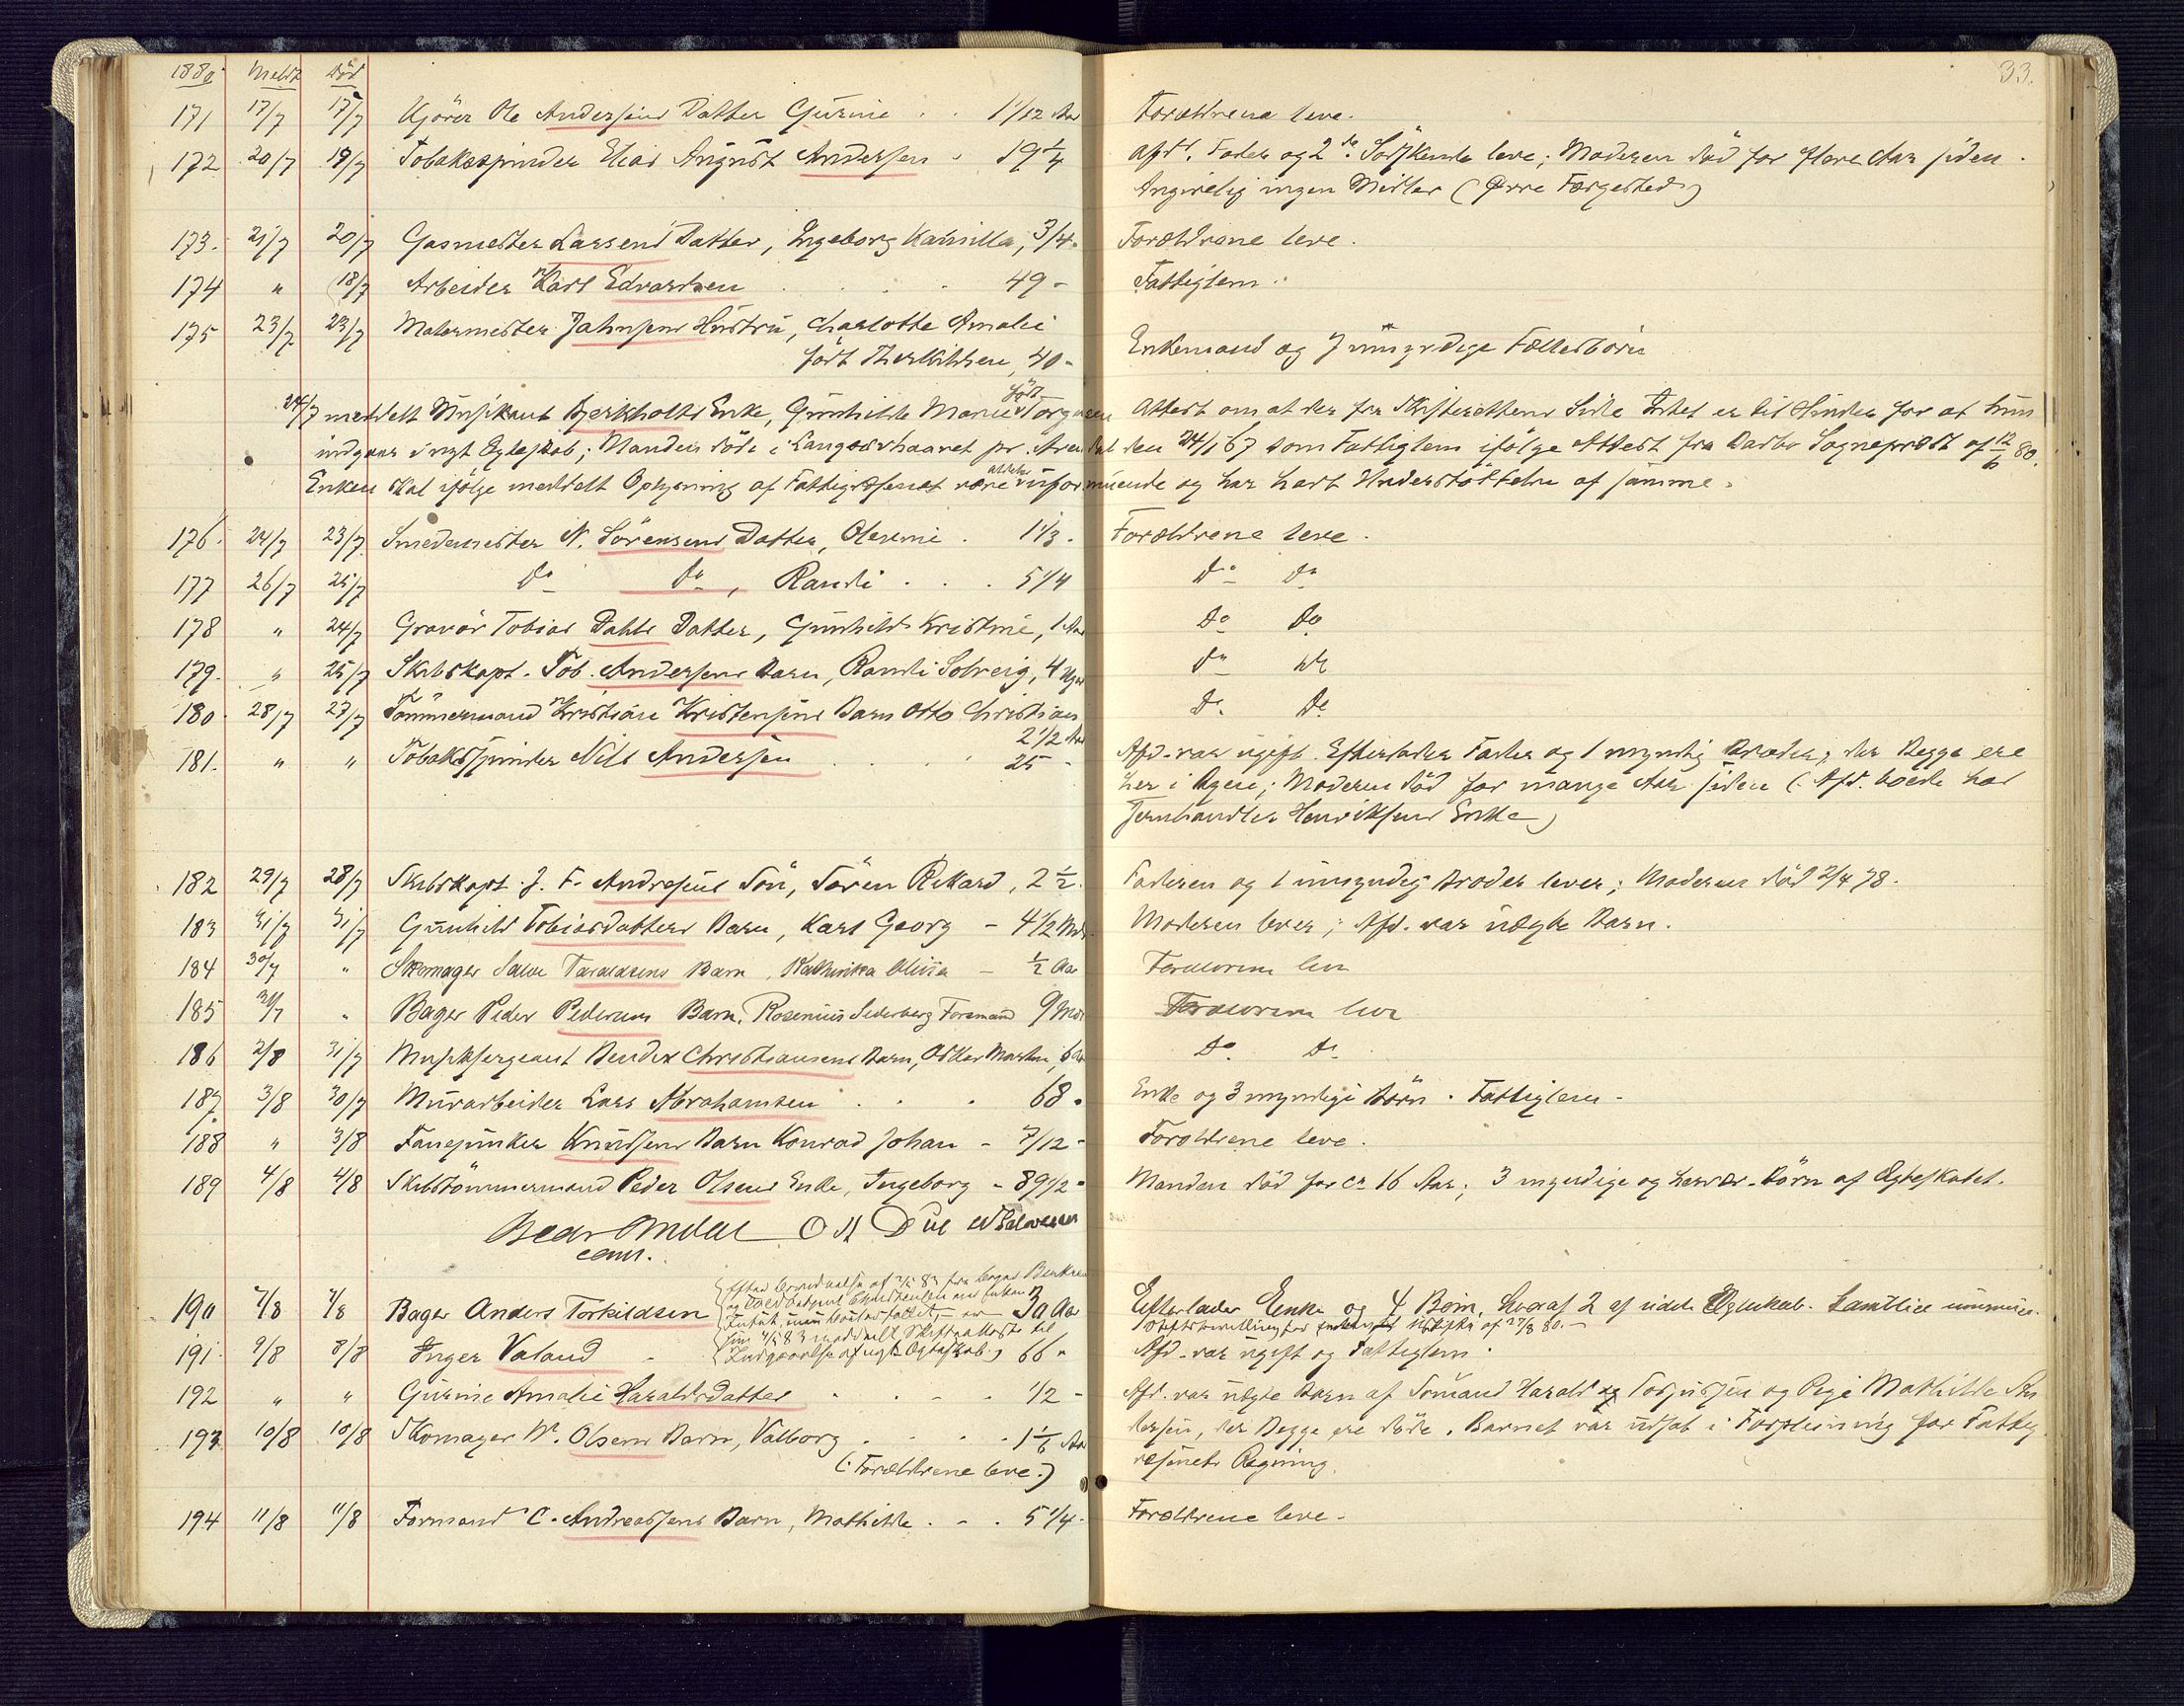 1880. Meldt Död 33.
171 17/7 17/7 Kjörer Ole Andersens Datter Gurine . . 1 1/12 Aar Forældrene leve.
172 20/7 19/7 Tobaksspinder Elias August Andersen - 19 1/4 Afd. Fader og 2de Södskende leve; Moderen död for flere Aar siden.
Angivelig ingen Midler (Övre Færgested)
173. 21/7 20/7 Gasmester Larsens Datter, Ingeborg Kamilla, 3/4. Forældrene leve.
174 " 18/7 Arbeider Karl Edvardsen . . . . 49 - Fattiglem.
175 23/7 23/7 Malermester Jahnsens Hustru, Charlotte Amalie
født Therkildsen, 40 - Enkemand og 7 umyndige Fællesbörn
født
24/7 meddelt Musikant Bjerkholts Enke, Gunhilde Marie Torgersen Attest om at der fra Skifterettens Side Intet er til Hinder for at hun
indgaar i nyt Egteskab; Manden döde i Langesæhaavet pr. Arendal den 24/1 67 som Fattiglem ifölge Attest fra Barbo Sognepræst af 12/6 80.
Enken skal ifölge meddelt Oplysning af Fattigvæsenet være aldeles uformuende og har havt Understöttelse af samme.
176. 24/7 23/7 Smedemester N. Sörensens Datter, Olevine . 1 1/3. Forældrene leve.
177 26/7 25/7 Do Do, Randi . . . 5 1/4 Do Do
178 " 24/7 Gravör Tobias Dahls Datter, Gunhild Kristine, 1 Aar Do Do
179. " 25/7 Skibskapt. Tob. Andersens Barn, Randi Solveig, 4 Uger Do Do
180. 28/7 27/7 Tömmermand Kristian Kristensens Barn Otto Christian Do Do
2 1/2 Aar
181. " " Tobaksspinder Nils Andersen . . . . 25 - Afd. var ugift. Efterlader Fader og 1 myndig Broder, der Begge ere
her i Byen; Moderen död for mange Aar siden (Afd. boede hos
Jernhandler Henriksens Enke)
182 29/7 28/7 Skibskapt. J. F. Andresens Sön, Sören Rikard, 2 1/2. Faderen og 1 umyndig Broder lever; Moderen död 2/4 78.
183 31/7 31/7 Gunhild Tobiasdatters Barn, Karl Georg - 4 1/2 Mdr. Moderen lever; Afd. var uægte Barn.
184 30/7 " Skomager Salve Taraldsens Barn, Kathinka Olivia - 1/2 Aar Forældrene leve
185 31/7 " Bager Peder Pedersens Barn, Rosenius Sederberg Formand 9 Mdr Forældrene leve
186 2/8 31/7 Musiksergeant Bendix Christiansens Barn, Oskar Martin, 6 Aar Do Do
187. 3/8 30/7 Murarbeider Lars Abrahamsen . . . 68. Enke og 3 myndige Börn. Fattiglem -
188 " 3/8 Fanejunker Knudsens Barn Konrad Johan - 7/12 - Forældrene leve.
189 4/8 4/8 Skibstömmermand Peder Olsens Enke, Ingeborg - 89 1/2 - Manden död for ca 16 Aar; 3 myndige og hervær. Börn af Egteskabet.
const.
190 7/8 7/8 Bager Anders Torkildsen 30 Aar Efterlader Enke og 4 Börn, hvoraf 2 af sidste Egteskab. Samtlige
191. 9/8 8/8 Inger Valand - 66 " Afd. var ugift og Fattiglem.
192 " " Gurine Amalie Haraldsdatter . . . . 1/2 - Afd. var uægte Barn af Sömand Harald Torjussen og Pige Mathilde An
193 10/8 10/8 Skomager W. Olsens Barn, Valborg . . . . 1 1/6 Aar dersen, der Begge ere döde. Barnet var udsat i Forpleining for Fattig
(: Forældrene leve :) væsenets Regning.
194 11/8 11/8 Formand C. Andreassens Barn, Mathilde . - . 5 1/4 - Forældrene leve.